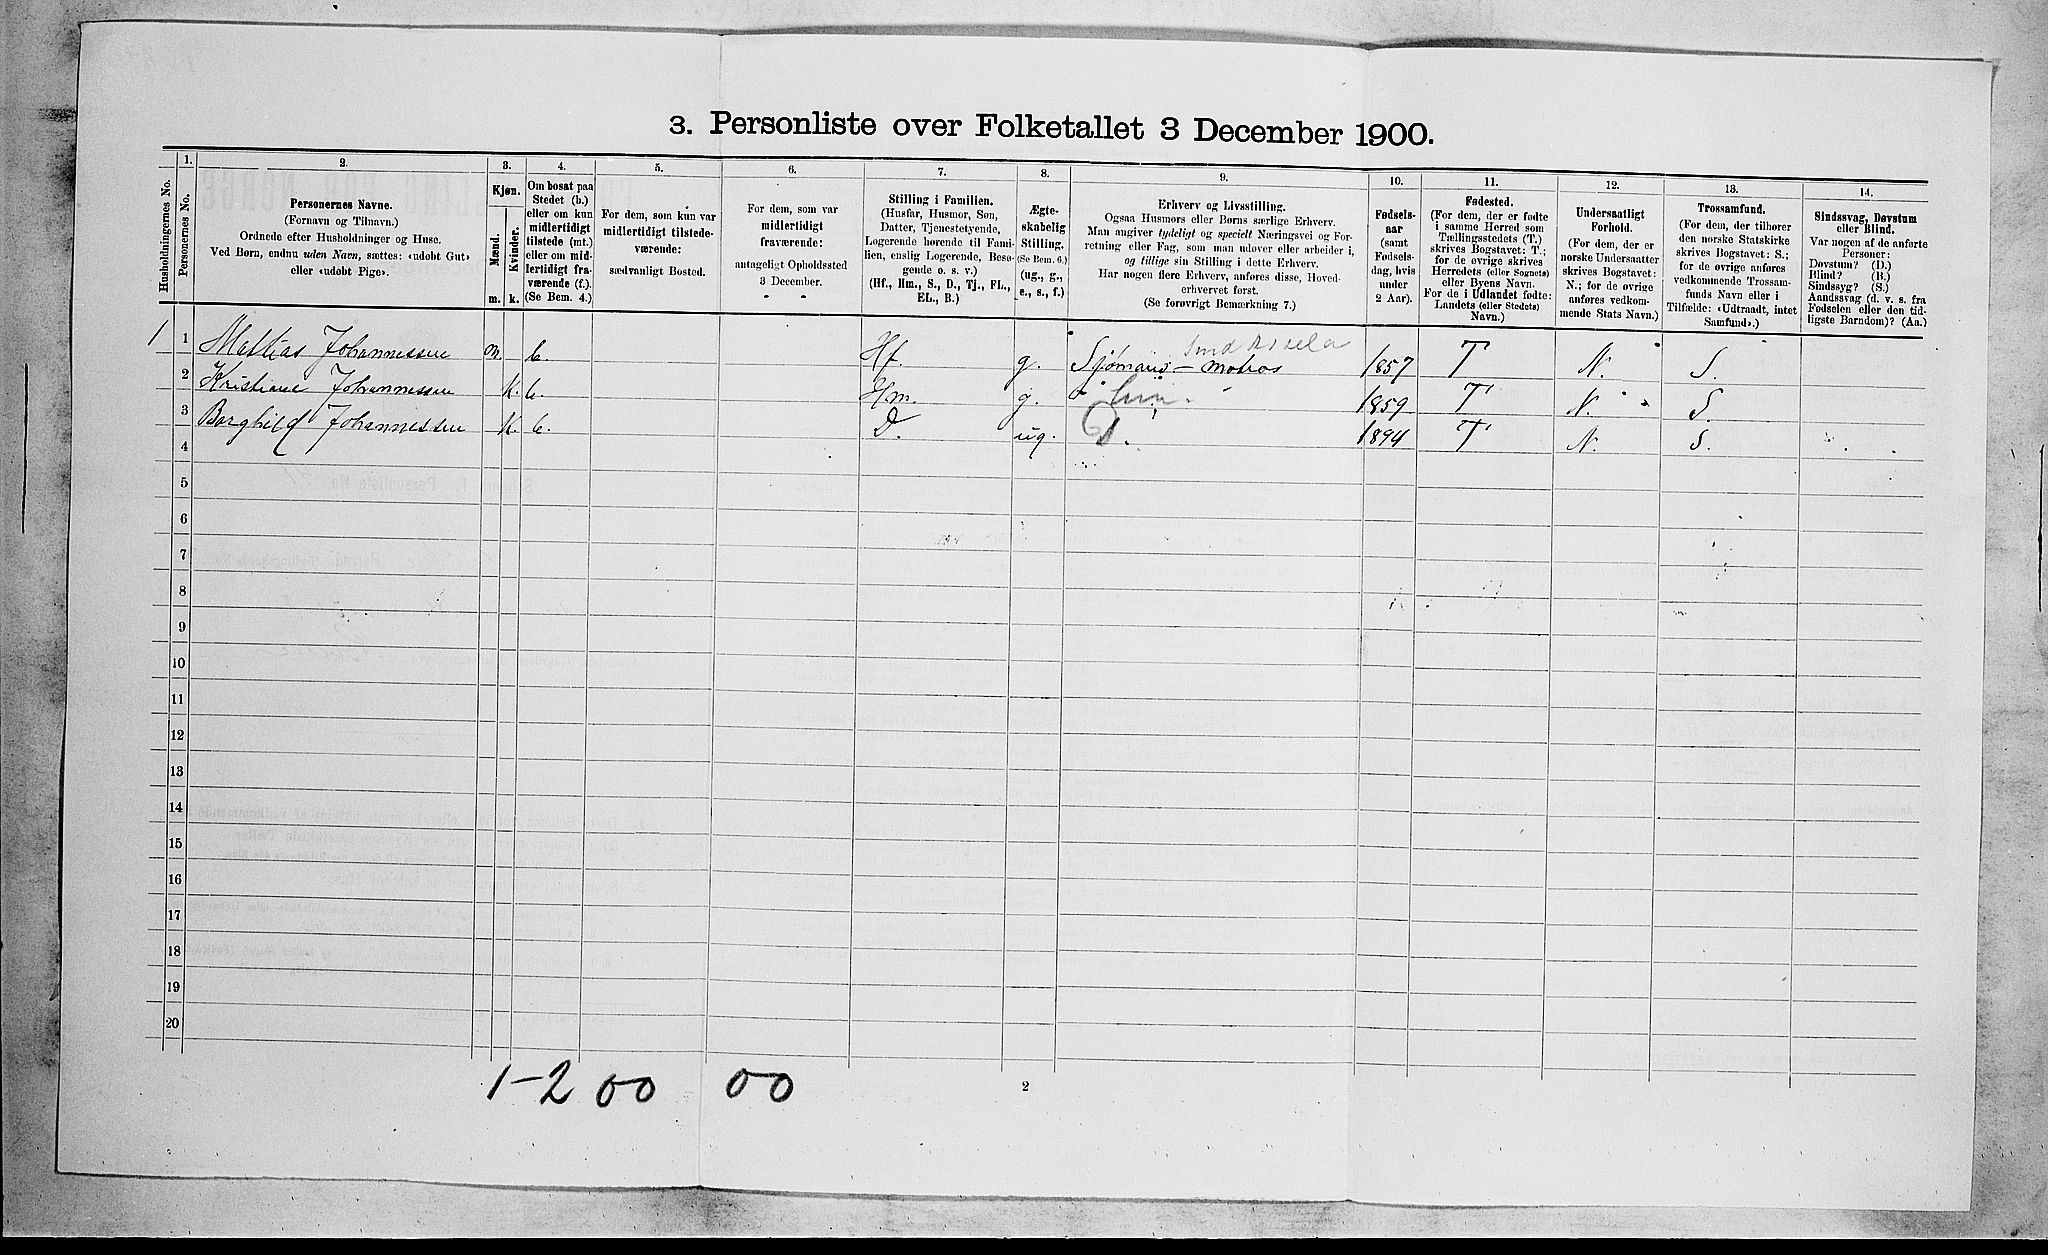 3. Personliste over Folketallet 3 December 1900.
1. 2. 3. 4. 5. 6. 7. 8. 9. 10. 11. 12. 13. 14.
Husholdningernes No.
Personernes No.
Personernes Navne.
(Fornavn og Tilnavn.)
Ordnede efter Husholdninger og Huse.
Ved Børn, endnu uden Navn, sættes: «udøbt Gut»
eller «udøbt Pige».
Kjøn.
Mænd.
Kvinder.
m. k.
Om bosat paa
Stedet (b.)
eller om kun
midlertidigt
tilstede (mt.)
eller om mid-
lertidigt fra-
værende (f.).
(Se Bem. 4.)
For dem, som kun var
midlertidigt tilstede-
værende:
sædvanligt Bosted.
For dem, som var
midlertidigt
fraværende:
antageligt Opholdssted
3 December.
Stilling i Familien.
(Husfar, Husmor, Søn,
Datter, Tjenestetyende,
Logerende hørende til Fami-
lien, enslig Logerende, Besø-
gende o. s. v.)
(Hf., Hm., S., D., Tj., FL.,
EL., B.)
Ægte-
skabelig
Stilling.
(Se Bem. 6.)
(ug., g.,
e., s., f.)
Erhverv og Livsstilling.
Ogsaa Husmors eller Børns særlige Erhverv.
Man angiver tydeligt og specielt Næringsvei og For-
retning eller Fag, som man udover eller arbeider i,
og tillige sin Stilling i dette Erhverv.
Har nogen flere Erhverv, anføres disse, Hoved-
erhvervet først.
(Se forøvrigt Bemærkning 7.)
Fødsels-
aar
(samt
Fødsels-
dag, hvis
under
2 Aar).
Fødested.
(For dem, der er fødte
i samme Herred som
Tællingsstedets (T.)
skrives Bogstavet: T.;
for de øvrige skrives
Herredets (eller Sognets)
eller Byens Navn.
For de i Udlandet fødte:
Landets (eller Stedets)
Navn.)
Undersaatligt
Forhold.
(For dem, der er
norske Undersaatter
skrives Bogstavet:
N.; for de øvrige
anføres vedkom-
mende Stats Navn.)
Trossamfund.
(For dem, der tilhører
den norske Statskirke
skrives Bogstavet: S.;
for de øvrige anføres
vedkommende Trossam-
funds Navn eller i
Tilfælde: «Udtraadt, intet
Samfund».)
Sindssvag, Døvstum
eller Blind.
Var nogen af de anførte
Personer:
Døvstum? (D.)
Blind? (B.)
Sindssyg? (S.)
Aandssvag (d. v. s. fra
Fødselen eller den tid-
ligste Barndom)? (Aa.)
1 1 Mattias Johannessen m. b. Hf. g. Sjømand – Matros 1857 T N. S.
2 Kristiane Johannessen K. b. Hm. g. 1859 T N. S.
3 Borghild Johannessen K. b. D. ug. 1894 T N. S.
4
5
6
7
8
9
10
11
12
13
14
15
16
17
18
19
20
1-2 00 00
2